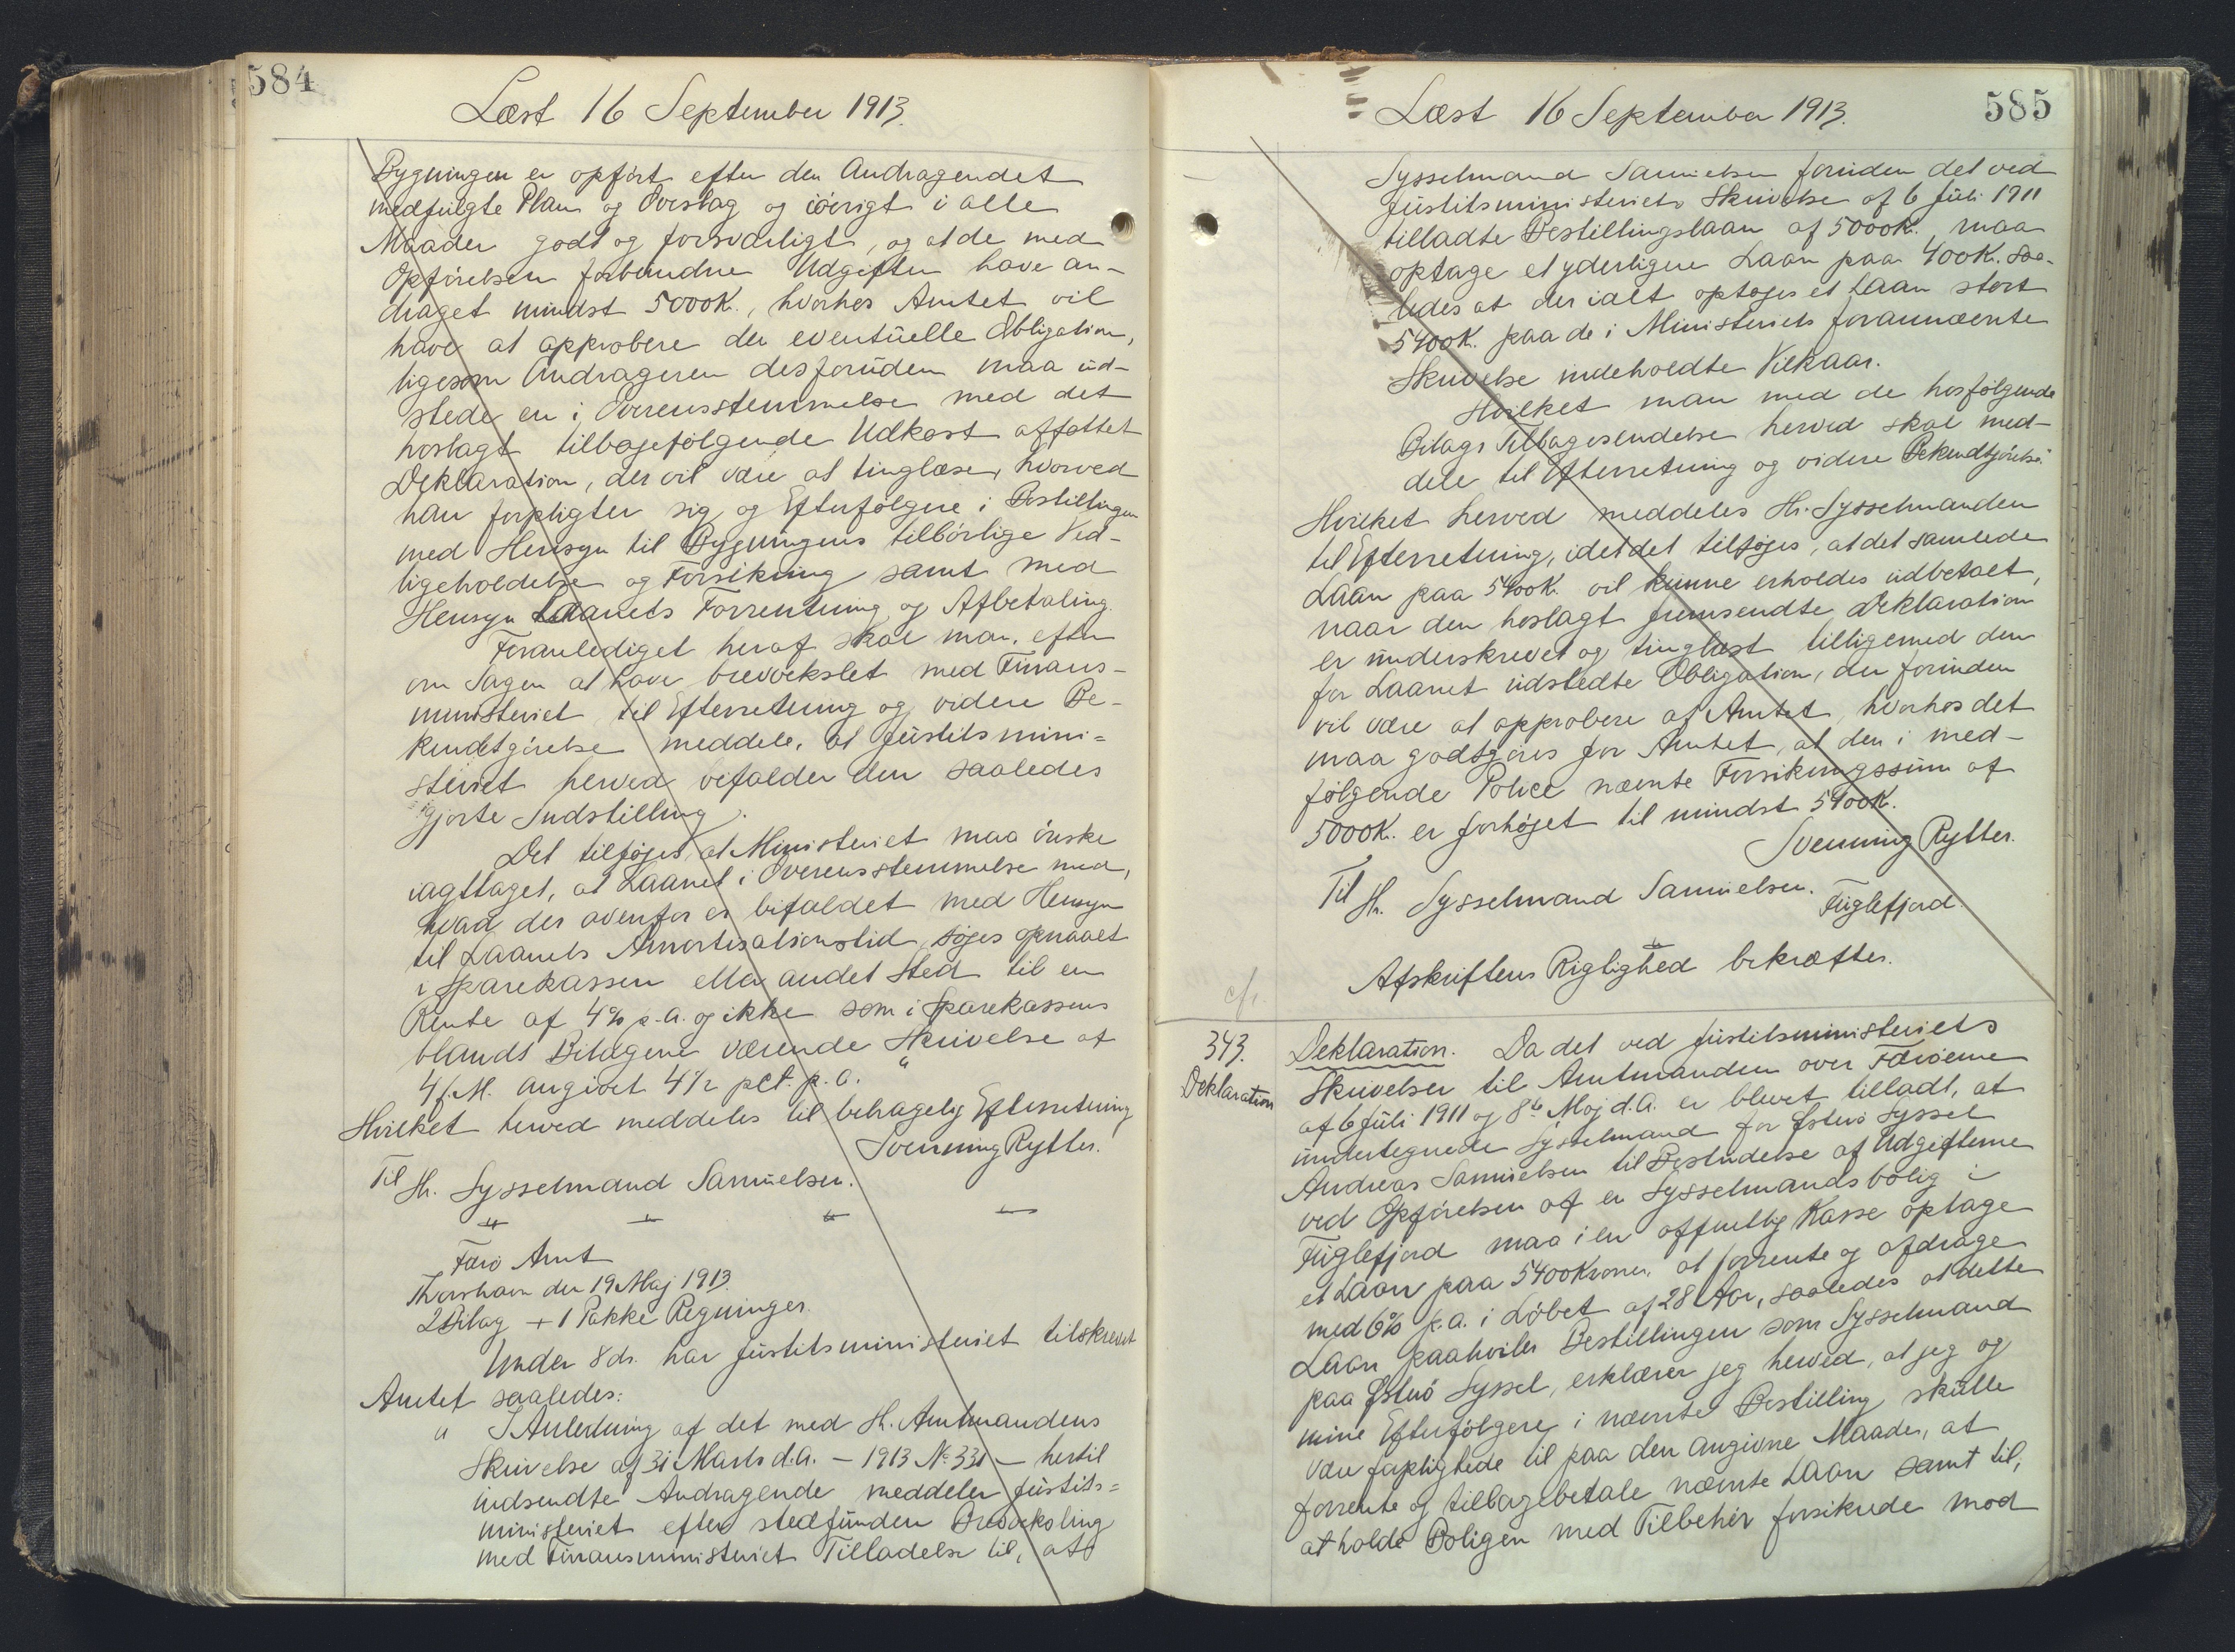 584
Læst 16 September 1913.
Bygningen er opført efter den Andragendet
medfulgte Plan og Overslag og iøvrigt i alle
Maader godt og forsvarligt, og at de med
Opførelsen forbundne Udgifter have an-
draget mindst 5000K., hvorhos Amtet vil
have at approbere den eventuelle Obligation,
ligesom Andrageren desforuden maa ud-
stede en i Overensstemmelse med det
hoslagt tilbagefølgende Udkast affattet
Deklaration, der vil være at tinglæse, hvorved
han forpligter sig og Efterfølgere i Bestillingen
med Hensyn til Bygningens tilbørlige Ved-
ligeholdelse og Forsikring samt med
Hensyn Laanets Forrentning og Afbetaling.
Foranlediget heraf skal man, efter
om Sagen at have brevvekslet med Finans-
ministeriet til Efterretning og videre Be-
kendtgørelse meddele, at Justitsmini-
steriet herved bifalder den saaledes
gjorte Indstilling.
Det tilføjes, at Ministeriet maa ønske
iagttaget, at Laanet i Overensstemmelse med,
hvad der ovenfor er bifaldet med Hensyn
til Laanets Amortisationstid, søges opnaaet
i Sparekassen eller andet Sted til en
Rente af 4% p.a. og ikke som i Sparekassens
blandt Bilagene værende Skrivelse af
4 f.M. angivet 4½ pct. p.a. "
Hvilket herved meddeles til behagelig Efterretning
Svenning Rytter.
Til Hr. Sysselmand Samuelsen.
Færø Amt
Thorshavn den 19 Maj 1913.
2 Bilag + 1 Pakke Regninger.
Under 8 ds. har Justitsministeriet tilskrevet
Amtet saaledes:
" I Anledning af det med Hr. Amtmandens
Skrivelse af 31 Marts d.A. - 1913 № 331 - hertil
indsendte Andragende meddeler Justits-
ministeriet efter stedfunden Brevveksling
med Finansministeriet Tilladelse til, at
585
Læst 16 September 1913.
Sysselmand Samuelsen foruden det ved
Justitsministeriets Skrivelse af 6 Juli 1911
tilladte Bestillingslaan af 5000K. maa
optage et yderligere Laan paa 400K. saa-
ledes at der ialt optages et Laan stort
5400K. paa de i Ministeriets forannævnte
Skrivelse indeholdte Vilkaar.
Hvilket man med de hosfølgende
Bilags Tilbagesendelse herved skal med-
dele til Efterretning og videre Bekendtgørelse."
Hvilket herved meddeles Hr. Sysselmanden
til Efterretning, idet det tilføjes, at det samlede
Laan paa 5400K. vil kunne erholdes udbetalt,
naar den hoslagt fremsendte Deklaration
er underskrevet og tinglæst tilligemed den
for Laanet udstedte Obligation, der forinden
vil være at approbere af Amtet, hvorhos det
maa godtgøres for Amtet, at den i med-
følgende Police nævnte Forsikringssum af
5000K. er forhøjet til mindst 5400K.
Svenning Rytter.
Til Hr. Sysselmand Samuelsen.
Fuglefjord.
Afskriftens Rigtighed bekræftes.
cfr.
343.
Deklaration
Deklaration. Da det ved Justitsministeriets
Skrivelser til Amtmanden over Færøerne
af 6 Juli 1911 og 8de Maj d.A. er blevet tilladt, at
undertegnede Sysselmand for Østerø Syssel
Andreas Samuelsen til Bestridelse af Udgifterne
ved Opførelsen af en Sysselmandsbolig i
Fuglefjord maa i en offentlig Kasse optage
et Laan paa 5400Kroner, at forrente og afdrage
med 6% p.a. i Løbet af 28 Aar, saaledes at dette
Laan paahviler Bestillingen som Sysselmand
paa Østerø Syssel, erklærer jeg herved, at jeg og
mine Efterfølgere i nævnte Bestilling skulle
være forpligtede til paa den angivne Maade, at
forrente og tilbagebetale nævnte Laan samt til,
at holde Boligen med Tilbehør forsikrede mod